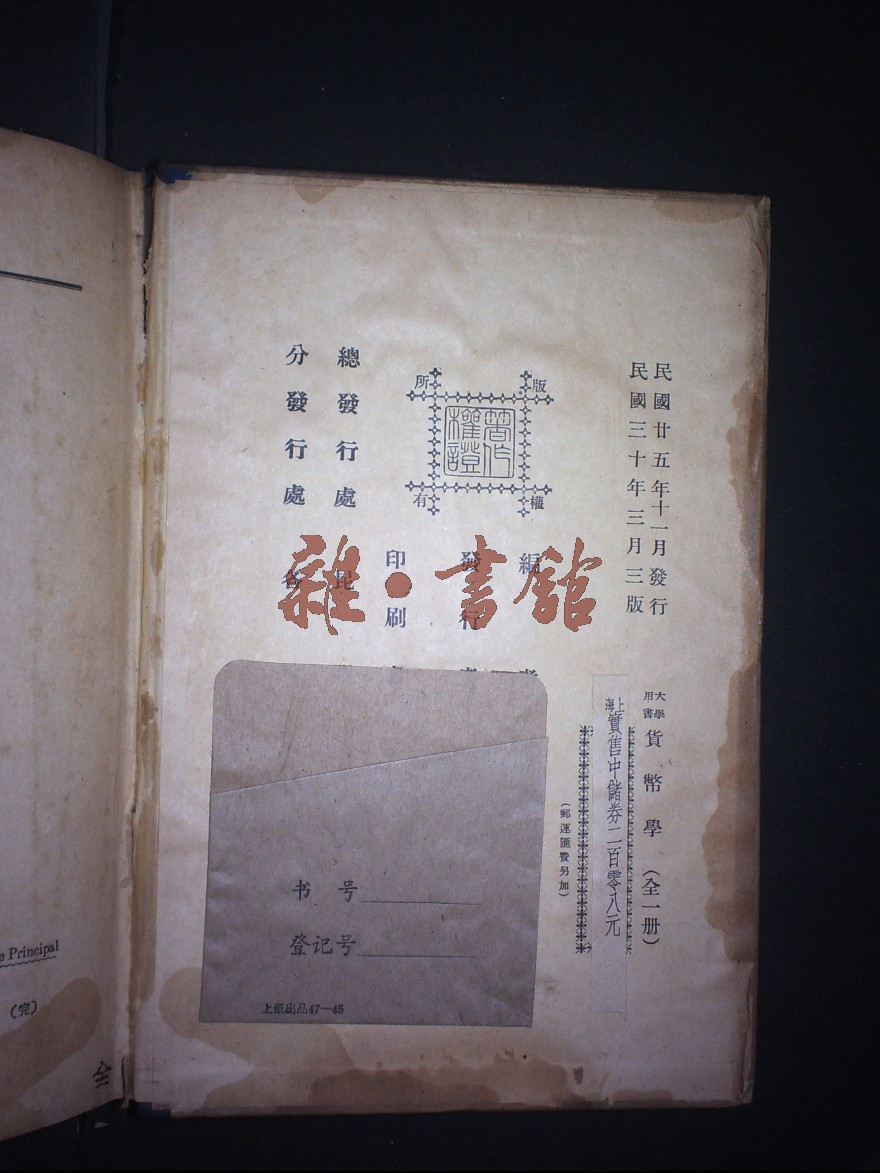 民國廿五年十一月發行
民國三十年三月三版
大學用書
貨幣學（全一册）
上海實售中儲券二百零八元
（郵運匯費另加）
版權所有
著作權證
編
發行
印刷
總發行處
昆
分發行處
各
雜·書舘
书号
登记号
上紙出品47—45
e Principal
（完）